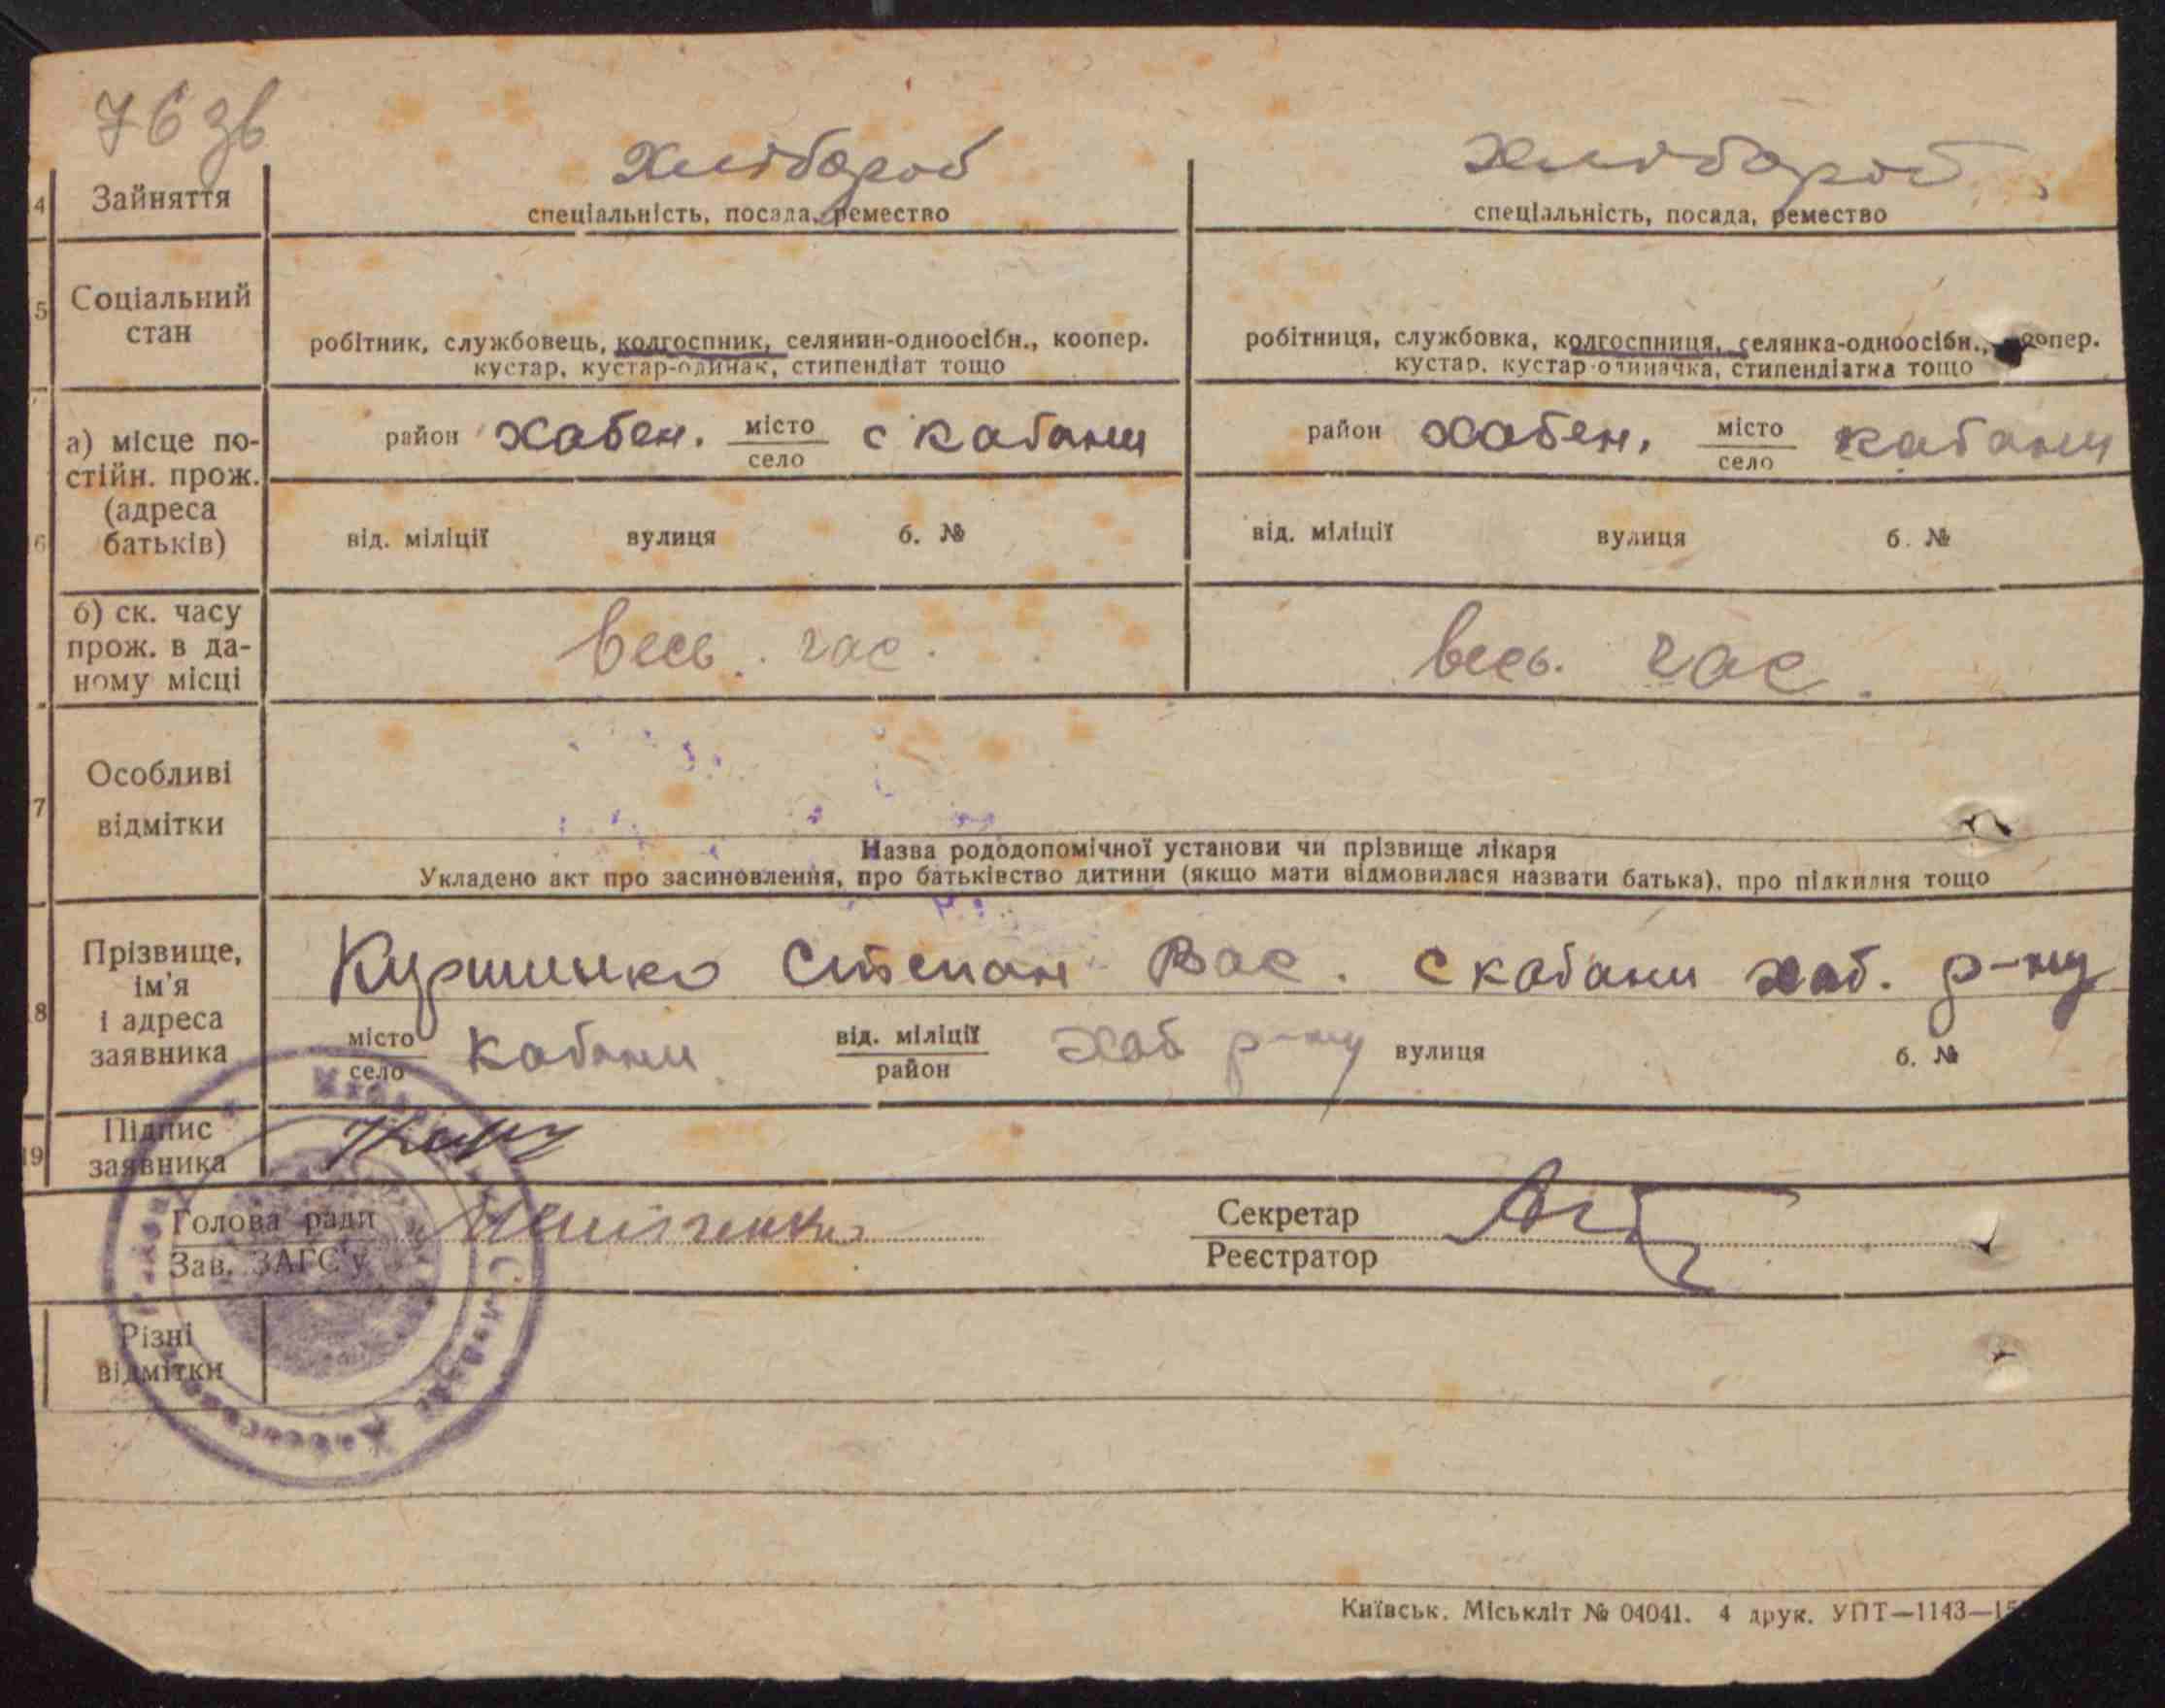 76 зв
Хлібороб
Хлібороб
4 Зайняття
спеціальність, посада, ремество
спеціальність, посада, ремество
5 Соціальний
стан
робітник, службовець, колгоспник, селянин-одноосібн., коопер.
кустар, кустар-одинак, стипендіат тощо
робітниця, службовка, колгоспниця, селянка-одноосібн., коопер.
кустар, кустар-одиначка, стипендіатка тощо
6 а) місце по-
стійн. прож.
(адреса
батьків)
район Хабен. місто
село с Кабани
район Хабен. місто
село Кабани
від. міліції вулиця б. №
від. міліції вулиця б. №
б) ск. часу
прож. в да-
ному місці
весь час.
весь час
7 Особливі
відмітки
Назва рододопомічної установи чи прізвище лікаря
Укладено акт про засиновлення, про батьківство дитини (якщо мати відмовилася назвати батька), про підкидня тощо
8 Прізвище,
ім'я
і адреса
заявника
Степан Вас. с Кабани Хаб. р-ну
місто
село Кабани від. міліції
район Хаб р-ну вулиця б. №
9 Підпис
заявника
Голова ради
Зав. ЗАГС'у
Секретар
Реєстратор
Різні
відмітки
Київськ. Міськліт № 04041. 4 друк. УПТ—1143—15